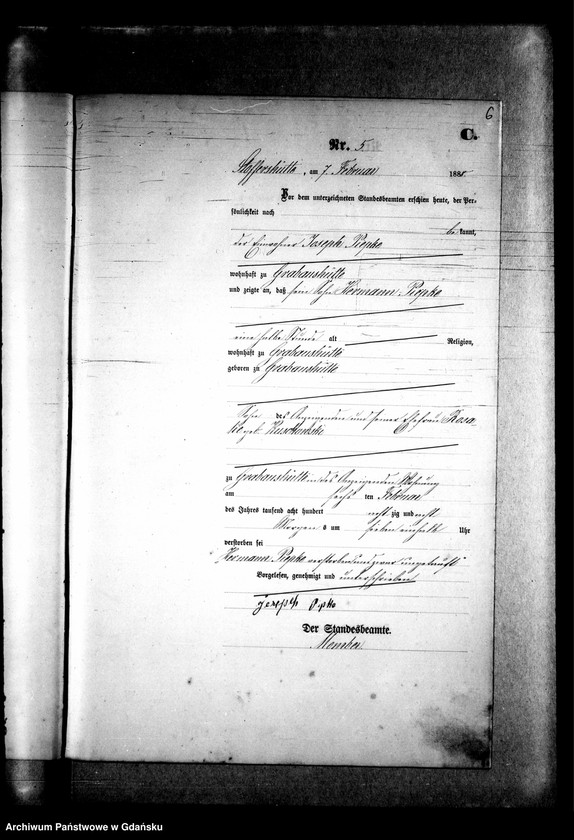 6
C.
Nr. 5
Stoffershütte, am 7. Februar 188
Vor dem unterzeichneten Standesbeamten erschien heute, der Per-
sönlichkeit nach
be kannt,
der Einwohner Joseph Piepke
wohnhaft zu Grabaushütte
und zeigte an, daß sein Sohn Hermann Piepke
eine halbe Stunde alt Religion,
wohnhaft zu Grabaushütte
geboren zu Grabaushütte
Sohn des Anzeigenden und seiner Ehefrau Rosa-
geb.
zu Grabaushütte in des Anzeigenden Wohnung
am sechs ten Februar
des Jahres tausend acht hundert acht zig und acht
Morgen s um sieben einhalb Uhr
verstorben sei
Hermann Piepke verstorben und zwar ungetauft
Vorgelesen, genehmigt und unterschrieben
Joseph
Der Standesbeamte.
Archiwum Państwowe w Gdańsku